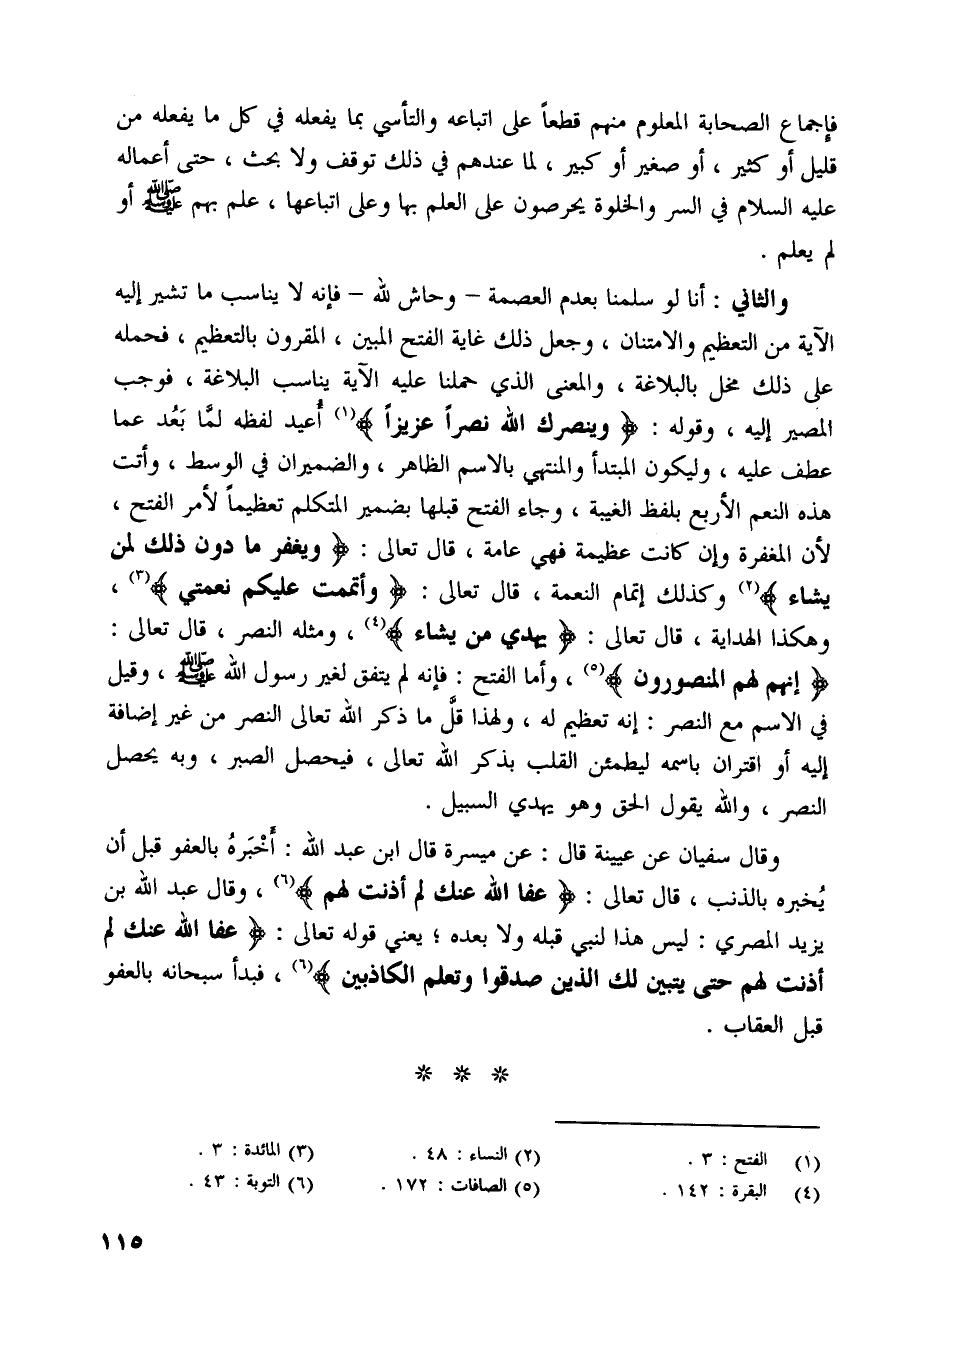 فإجماع الصحابة المعلوم منهم قطعاً على اتباعه والتأسي بما يفعله في كل ما يفعله من
قليل أو كثير ، أو صغير أو كبير ، لما عندهم في ذلك توقف ولا بحث ، حتى أعماله
عليه السلام في السر والخلوة يحرصون على العلم بها وعلى اتباعها ، علم بهم ﷺ أو
لم يعلم .
والثاني : أنا لو سلمنا بعدم العصمة – وحاش لله – فإنه لا يناسب ما تشير إليه
الآية من التعظيم والامتنان ، وجعل ذلك غاية الفتح المبين ، المقرون بالتعظيم ، فحمله
على ذلك مخل بالبلاغة ، والمعنى الذي حملنا عليه الآية يناسب البلاغة ، فوجب
المصير إليه ، وقوله : ﴿ وينصرك الله نصراً عزيزاً ﴾(١) أُعيد لفظه لمَّا بَعُد عما
عطف عليه ، وليكون المبتدأ والمنتهي بالاسم الظاهر ، والضميران في الوسط ، وأتت
هذه النعم الأربع بلفظ الغيبة ، وجاء الفتح قبلها بضمير المتكلم تعظيماً لأمر الفتح ،
لأن المغفرة وإن كانت عظيمة فهي عامة ، قال تعالى : ﴿ ويغفر ما دون ذلك لمن
يشاء ﴾(٢) وكذلك إتمام النعمة ، قال تعالى : ﴿ وأتممت عليكم نعمتي ﴾(٣) ،
وهكذا الهداية ، قال تعالى : ﴿ يهدي من يشاء ﴾(٤) ، ومثله النصر ، قال تعالى :
﴿ إنهم لهم المنصورون ﴾(٥) ، وأما الفتح : فإنه لم يتفق لغير رسول الله ﷺ ، وقيل
في الاسم مع النصر : إنه تعظيم له ، ولهذا قلَّ ما ذكر الله تعالى النصر من غير إضافة
إليه أو اقتران باسمه ليطمئن القلب بذكر الله تعالى ، فيحصل الصبر ، وبه يحصل
النصر ، والله يقول الحق وهو يهدي السبيل .
وقال سفيان عن عيينة قال : عن ميسرة قال ابن عبد الله : أَخْبَرهُ بالعفو قبل أن
يُخبره بالذنب ، قال تعالى : ﴿ عفا الله عنك لم أذنت لهم ﴾(٦) ، وقال عبد الله بن
يزيد المصري : ليس هذا لنبي قبله ولا بعده ؛ يعني قوله تعالى : ﴿ عفا الله عنك لم
أذنت لهم حتى يتبين لك الذين صدقوا وتعلم الكاذبين ﴾(٦) ، فبدأ سبحانه بالعفو
قبل العقاب .
* * *
(١) الفتح : ٣ . (٢) النساء : ٤٨ . (٣) المائدة : ٣ .
(٤) البقرة : ١٤٢ . (٥) الصافات : ١٧٢ . (٦) التوبة : ٤٣ .
١١٥